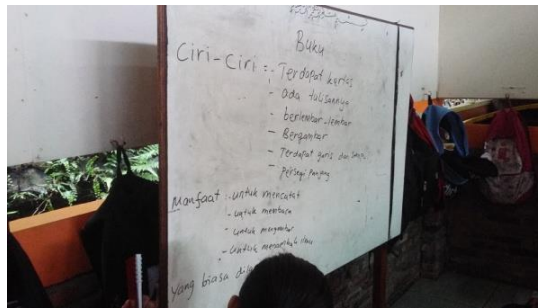 Buku
Ciri-Ciri : - Terdapat kertas
- ada tulisannya
- berlembar-lembar
- Bergambar
- Terdapat garis dan
- persegi panjang
Manfaat : - untuk mencatat
- untuk membaca
- untuk menggambar
- untuk menambah ilmu
yang biasa